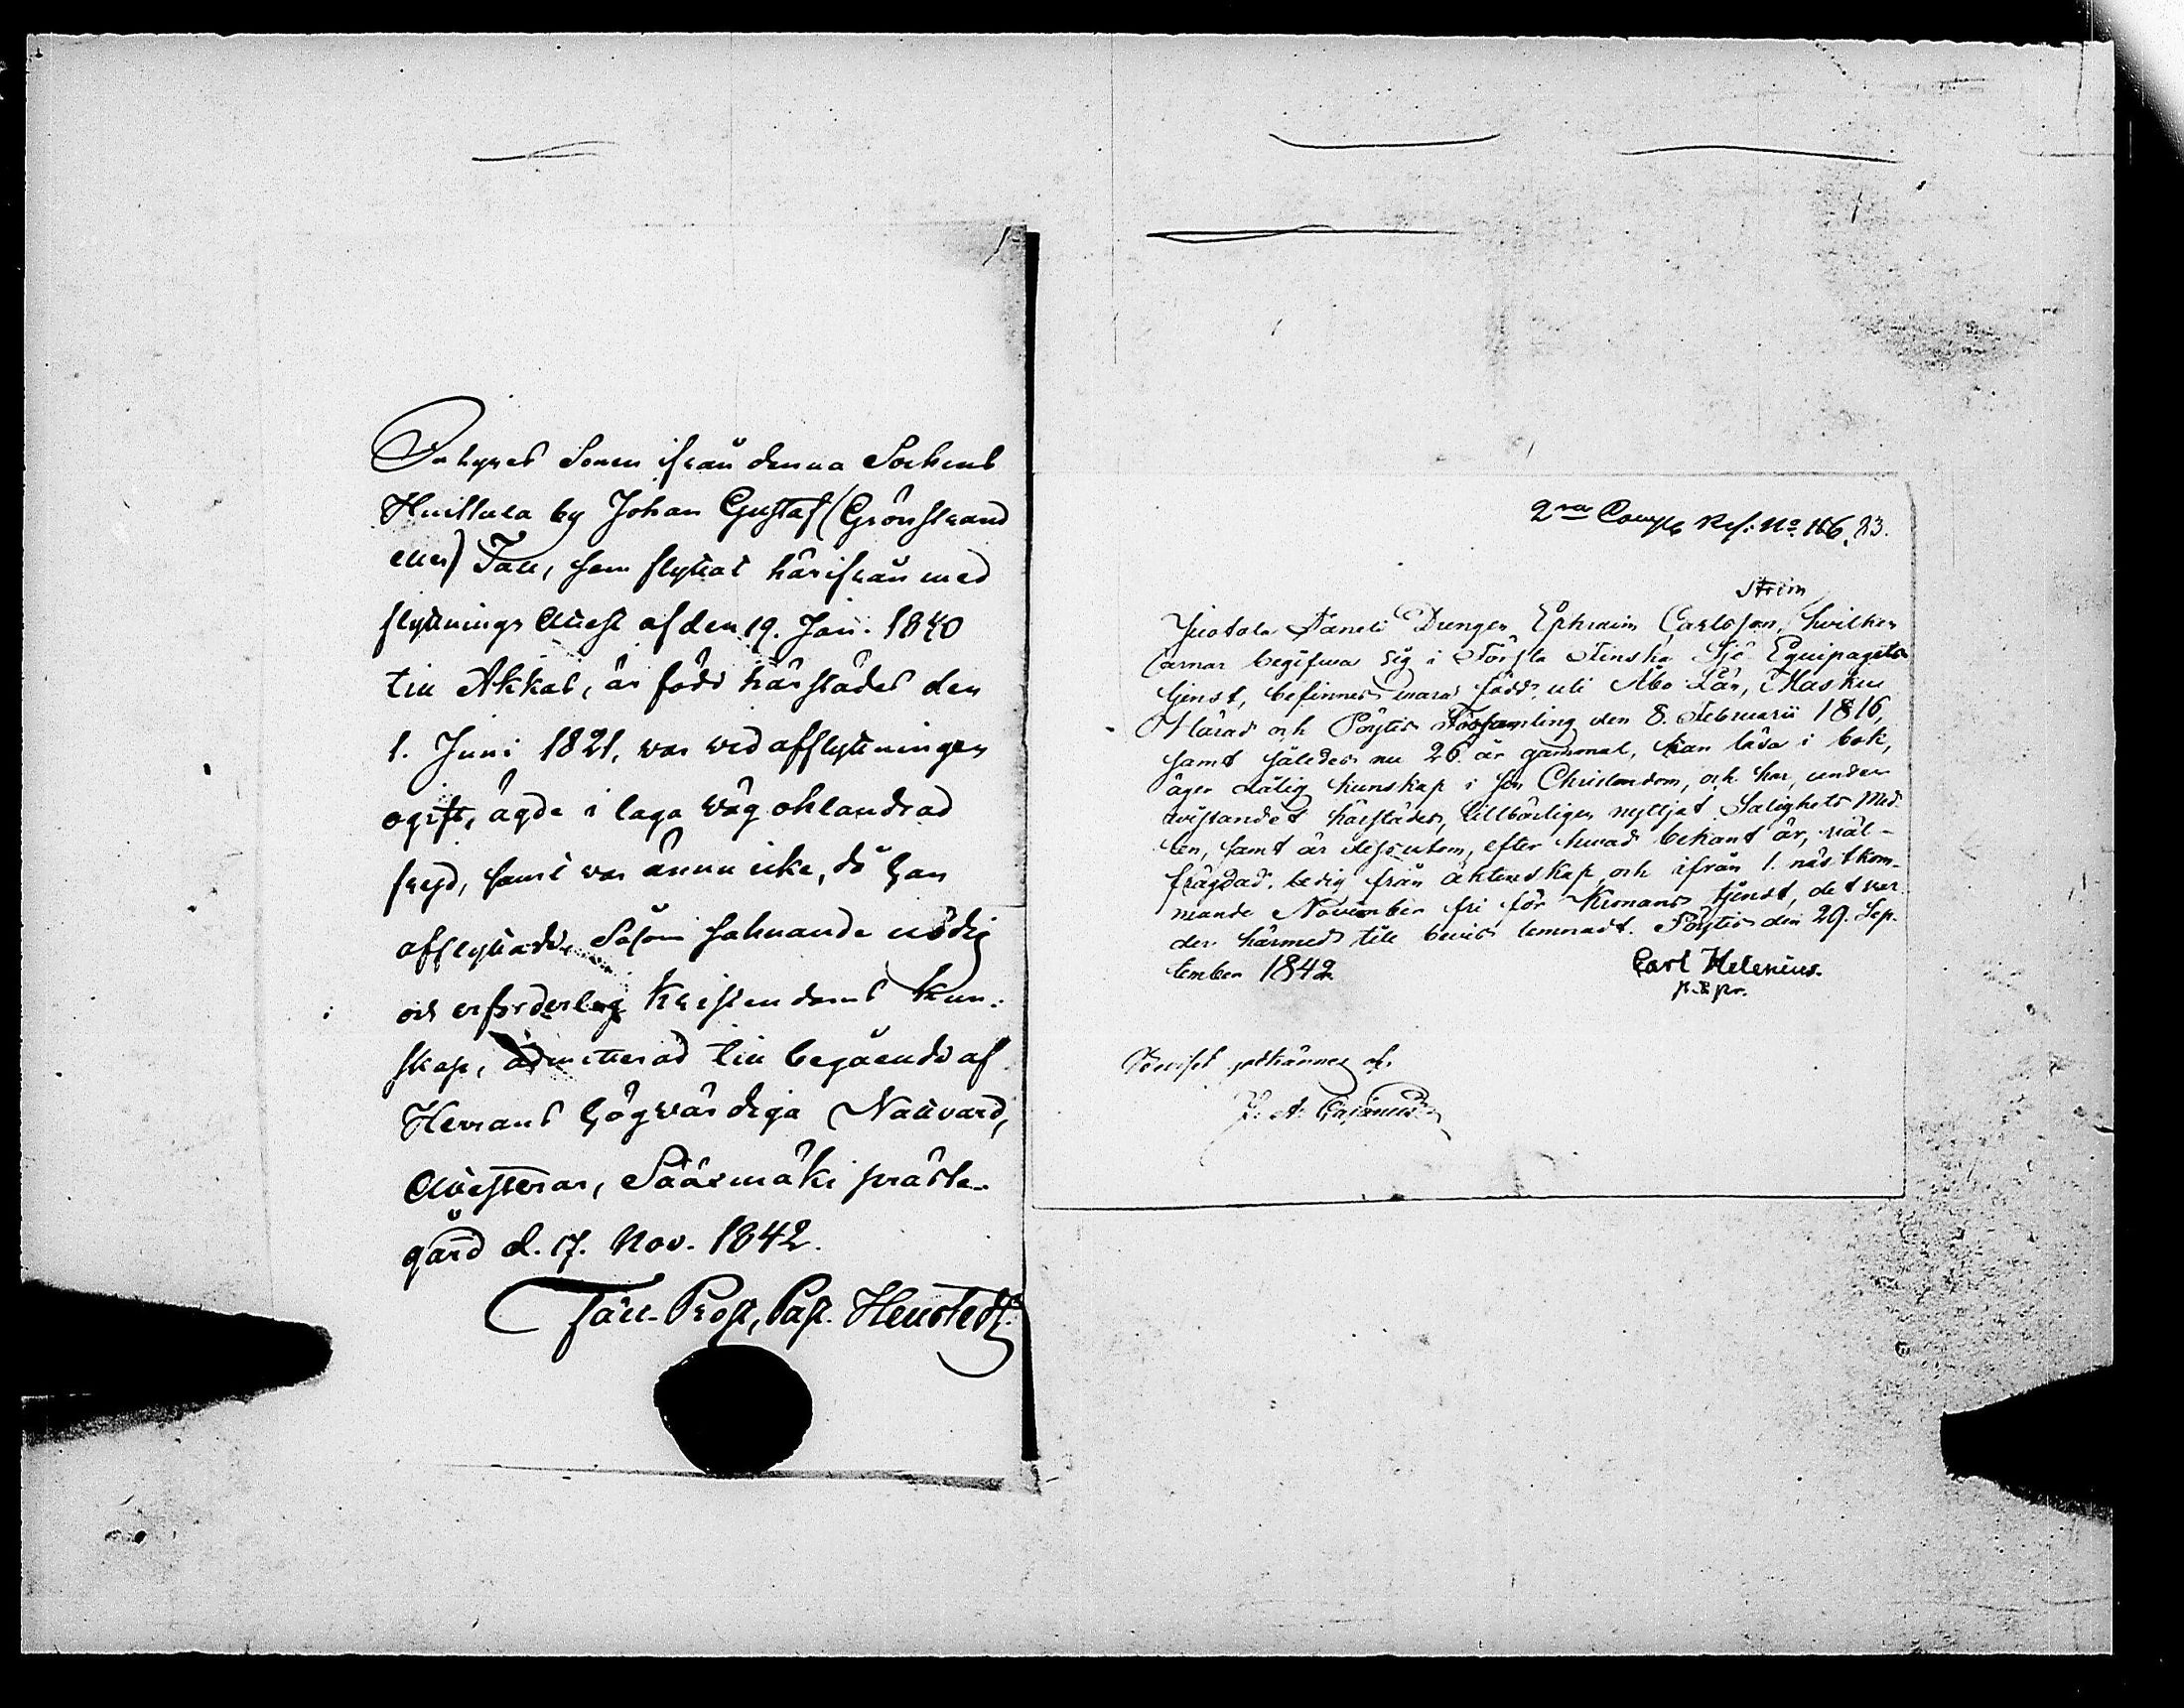 Inhyses Sonen ifrån denna Sockens
Huittula by Johan Gustaf (Grönstrand
eller) Tall, som flyttat härifrån med
flyttnings Attest af den 19. Jan. 1840
till Akkas, är född härstädes den
1. Juni 1821, war wid afflyttningen
ogift, ägde i laga wäg oklandrad
frejd, samt war ännu icke, då han
afflyttade, såsom saknande nödig
och erforderlig Kristendoms kun-
skap, admitterad till begående af
Herrans högwärdiga Nattvard,
Attesterar, Sääxmäki präste-
gård d. 17. Nov. 1842.
Prost, Past. Heurstedt.
2ra Comp Ref: No 166. 83.
Ström
Juotola Taneli Drengen Ephraim Carlsson, hwilken
ärnar begifwa sig i Första Finska Sjö Equipagets
tjenst, befinnes wara född uti Åbo Län, Masku
Härad och Pöytis Församling den 8. Februarii 1816,
samt således nu 26 år gammal, kan läsa i bok,
äger nålig kunskap i sin Christendom, och har, under
wistandet härstädes, tillbörligen nyttjat Salighets Med-
len, samt är dessutom, efter hwad bekant är, wäl-
frägdad, ledig från äktenskap och ifrån 1. nästkom-
mande November fri för Kronans tjenst, det war-
der härmed till bewis lemnadt. Pöytis den 29. Sep-
tember 1842
Carl Helenius.